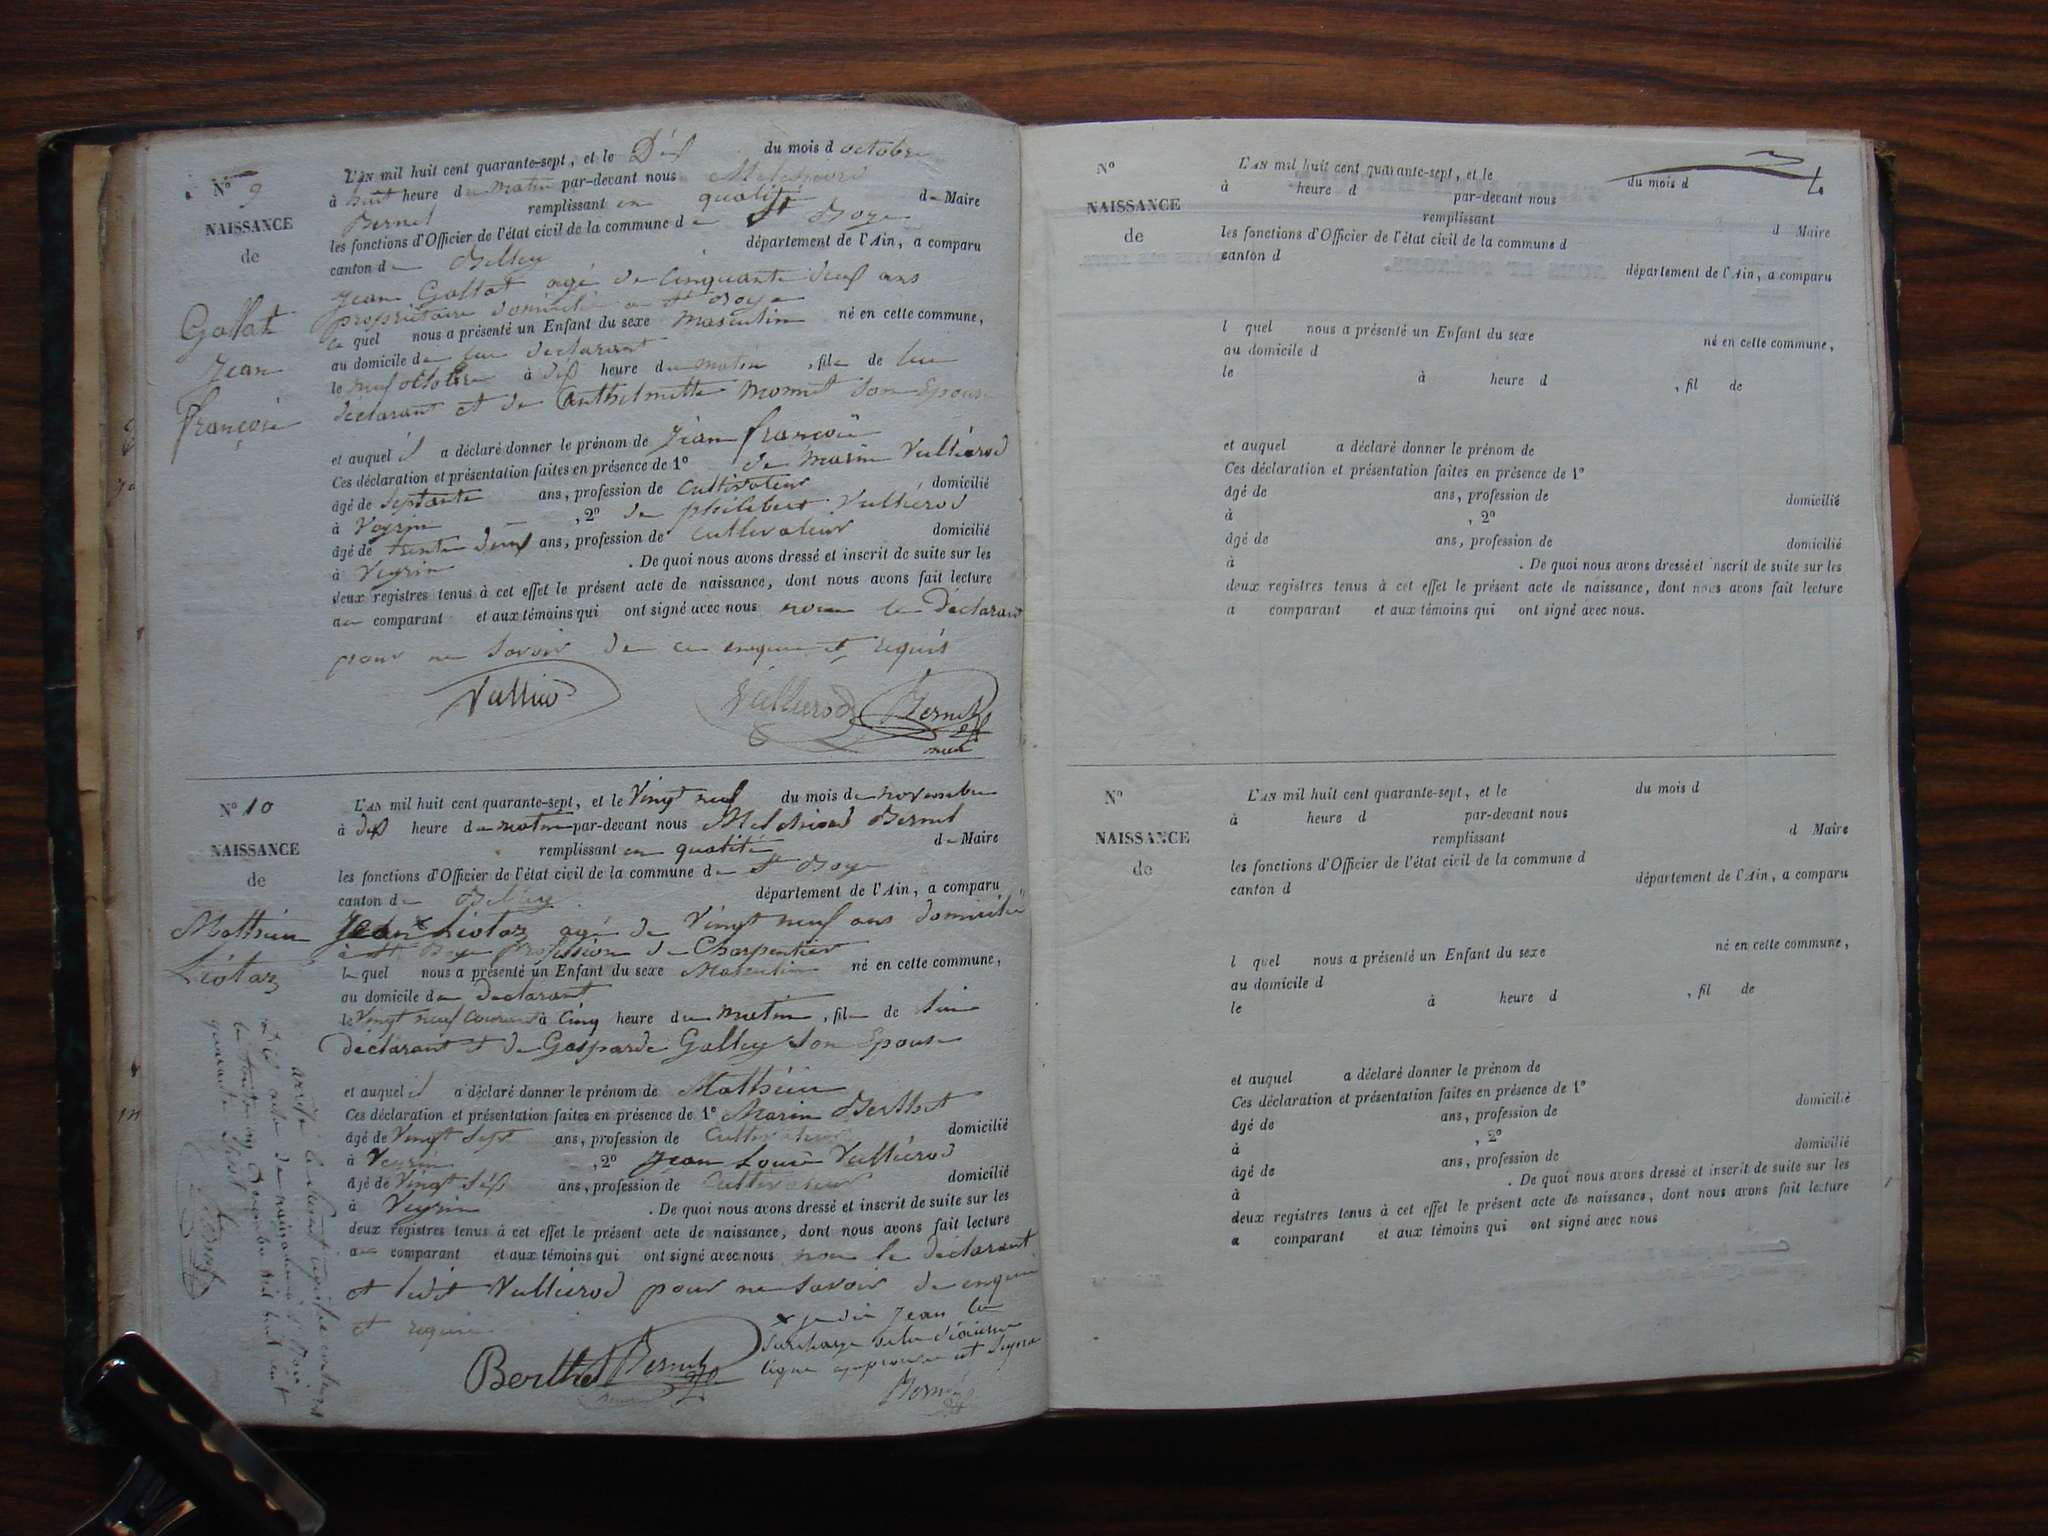 N° 9
NAISSANCE
de
Gallat
Jean
françois
L'AN mil huit cent quarante-sept, et le Dix du mois d octobre
à huit heure du matin par-devant nous Melchiord
Bernet remplissant en qualité de Maire
les fonctions d'Officier de l'état civil de la commune de St Boye
canton de Belley département de l'Ain, a comparu
Jean Gallat agé de Cinquante deux ans
propriétaire domicilié a St Boye
le quel nous a présenté un Enfant du sexe masculin né en cette commune,
au domicile de lui déclarant
le neuf octobre à dix heure du matin, fils de lui
déclarant et de Anthelmette Monnet Son Epouse
et auquel il a déclaré donner le prénom de Jean françois
Ces déclaration et présentation faites en présence de 1° de Marin Vulliérod
âgé de Septante ans, profession de Cultivateur domicilié
à Veyrin, 2° de philibert Vulliérod
âgé de trente deux ans, profession de Cultivateur domicilié
à Veyrin. De quoi nous avons dressé et inscrit de suite sur les
deux registres tenus à cet effet le présent acte de naissance, dont nous avons fait lecture
au comparant et aux témoins qui ont signé avec nous non le Déclarant
pour ne Savoir de ce enquis et requis
Vulliérod Bernet
N° 10
NAISSANCE
de
Mathieu
Liotaz
L'AN mil huit cent quarante-sept, et le Vingt neuf du mois de novembre
à dix heure du matin par-devant nous Melchiord Bernet
remplissant en qualité de Maire
les fonctions d'Officier de l'état civil de la commune de St Boye
canton de Belley département de l'Ain, a comparu
Jean x Liotaz agé de Vingt neuf ans domicilié
à St Boye profession de Charpentier
le quel nous a présenté un Enfant du sexe Masculin né en cette commune,
au domicile du declarant
le Vingt neuf courant à Cinq heure du matin, fils de lui
déclarant et de Gasparde Galley Son Epouse
et auquel il a déclaré donner le prénom de Mathieu
Ces déclaration et présentation faites en présence de 1° Marin Berthet
âgé de Vingt Sept ans, profession de Cultivateur domicilié
à Veyrin, 2° Jean Louis Vulliérod
âgé de Vingt Six ans, profession de Cultivateur domicilié
à Veyrin. De quoi nous avons dressé et inscrit de suite sur les
deux registres tenus à cet effet le présent acte de naissance, dont nous avons fait lecture
au comparant et aux témoins qui ont signé avec nous non le déclarant
et ledit Vulliérod pour ne Savoir de enquis
et requis
x je dis Jean la
Surcharge
ligne approuvé et Signé
Berthet Bernet
Bernet
arrêté le présent registre contenant
Dix acte de naissance
le trente un Decembre Mil huit cent
quarante Sept
Bernet
N°
NAISSANCE
de
L'AN mil huit cent quarante-sept, et le du mois d
à heure d par-devant nous
remplissant d Maire
les fonctions d'Officier de l'état civil de la commune d
canton d département de l'Ain, a comparu
l quel nous a présenté un Enfant du sexe né en cette commune,
au domicile d
le à heure d, fil de
et auquel a déclaré donner le prénom de
Ces déclaration et présentation faites en présence de 1°
âgé de ans, profession de domicilié
à, 2°
âgé de ans, profession de domicilié
à. De quoi nous avons dressé et inscrit de suite sur les
deux registres tenus à cet effet le présent acte de naissance, dont nous avons fait lecture
a comparant et aux témoins qui ont signé avec nous.
N°
NAISSANCE
de
L'AN mil huit cent quarante-sept, et le du mois d
à heure d par-devant nous
remplissant d Maire
les fonctions d'Officier de l'état civil de la commune d
canton d département de l'Ain, a comparu
l quel nous a présenté un Enfant du sexe né en cette commune,
au domicile d
le à heure d, fil de
et auquel a déclaré donner le prénom de
Ces déclaration et présentation faites en présence de 1°
âgé de ans, profession de domicilié
à, 2°
âgé de ans, profession de domicilié
à. De quoi nous avons dressé et inscrit de suite sur les
deux registres tenus à cet effet le présent acte de naissance, dont nous avons fait lecture
a comparant et aux témoins qui ont signé avec nous